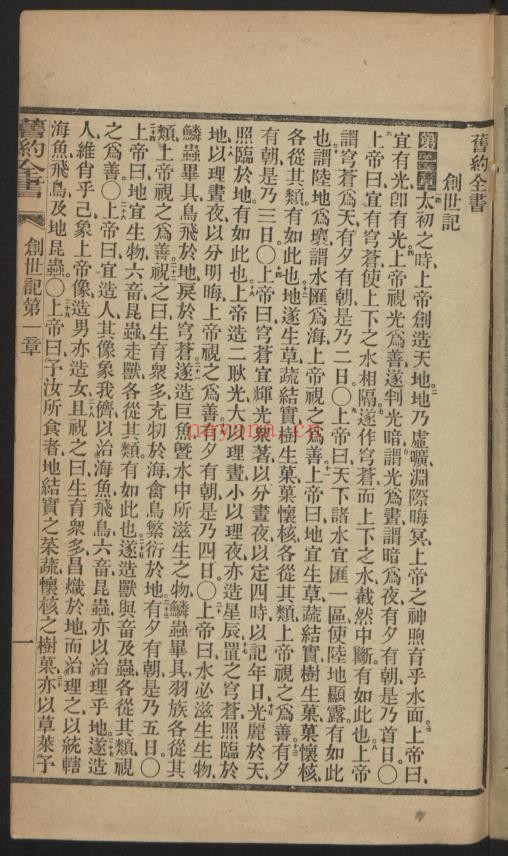 舊約全書
創世記
第一章 太初之時、上帝創造天地、地乃虛曠、淵際晦冥、上帝之神照育乎水面。上帝曰、
宜有光、卽有光、上帝視光爲善、遂判光暗、謂光爲晝、謂暗爲夜、有夕有朝、是乃首日、〇
上帝曰、宜有穹蒼、使上下之水相隔、遂作穹蒼、而上下之水、截然中斷、有如此也、上帝
謂穹蒼爲天、有夕有朝、是乃二日、〇上帝曰、天下諸水宜匯一區、使陸地顯露、有如此
也、謂陸地爲壤、謂水匯爲海、上帝視之爲善、上帝曰、地宜生草蔬結實、樹生菓、菓懷核、
各從其類、有如此也、地遂生草蔬結實、樹生菓、菓懷核、各從其類、上帝視之爲善、有夕
有朝、是乃三日、〇上帝曰、穹蒼宜輝光衆著、以分晝夜、以定四時、以記年日、光麗於天、
照臨於地、有如此也、上帝造二耿光、大以理晝、小以理夜、亦造星辰、置之穹蒼、照臨於
地、以理晝夜、以分明晦、上帝視之爲善、有夕有朝、是乃四日、〇上帝曰、水必滋生生物、
鱗蟲畢具、鳥飛於地、戾於穹蒼、遂造巨魚、曁水中所滋生之物、鱗蟲畢具、羽族各從其
類、上帝視之爲善、祝之曰、生育衆多、充牣於海、禽鳥繁衍於地、有夕有朝、是乃五日、〇
上帝曰、地宜生物、六畜昆蟲走獸、各從其類、有如此也、遂造獸與畜及蟲、各從其類、視
之爲善、〇上帝曰、宜造人、其像象我儕、以治海魚飛鳥、六畜昆蟲、亦以治理乎地、遂造
人、維肖乎己、象上帝像、造男亦造女、且祝之曰、生育衆多、昌熾於地、而治理之、以統轄
海魚飛鳥及地昆蟲、〇上帝曰、予汝所食者、地結實之菜蔬、懷核之樹菓、亦以草萊予
舊約全書
創世記第一章
一
nayona.cn